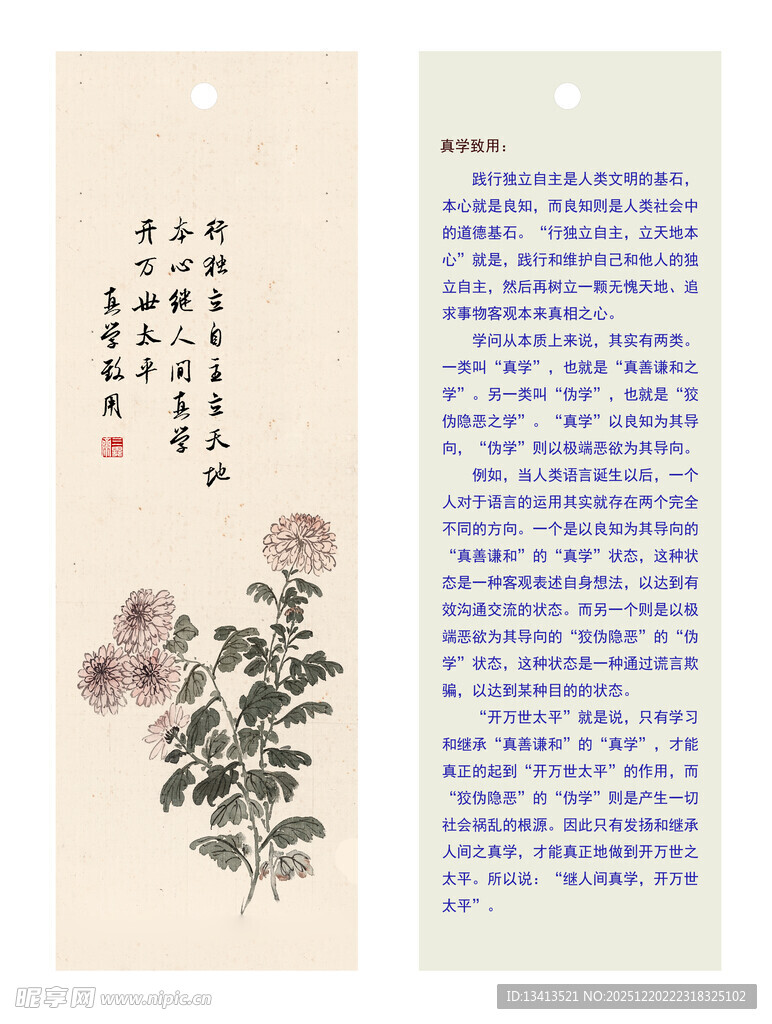 行独立自主立天地
本心继人间真学
开万世太平
真学致用
真学致用：
践行独立自主是人类文明的基石，
本心就是良知，而良知则是人类社会中
的道德基石。“行独立自主，立天地本
心”就是，践行和维护自己和他人的独
立自主，然后再树立一颗无愧天地、追
求事物客观本来真相之心。
学问从本质上来说，其实有两类。
一类叫“真学”，也就是“真善谦和之
学”。另一类叫“伪学”，也就是“狡
伪隐恶之学”。“真学”以良知为其导
向，“伪学”则以极端恶欲为其导向。
例如，当人类语言诞生以后，一个
人对于语言的运用其实就存在两个完全
不同的方向。一个是以良知为其导向的
“真善谦和”的“真学”状态，这种状
态是一种客观表述自身想法，以达到有
效沟通交流的状态。而另一个则是以极
端恶欲为其导向的“狡伪隐恶”的“伪
学”状态，这种状态是一种通过谎言欺
骗，以达到某种目的的状态。
“开万世太平”就是说，只有学习
和继承“真善谦和”的“真学”，才能
真正的起到“开万世太平”的作用，而
“狡伪隐恶”的“伪学”则是产生一切
社会祸乱的根源。因此只有发扬和继承
人间之真学，才能真正地做到开万世之
太平。所以说：“继人间真学，开万世
太平”。
昵享网 www.nipic.cn
ID:13413521 NO:20251220222318325102